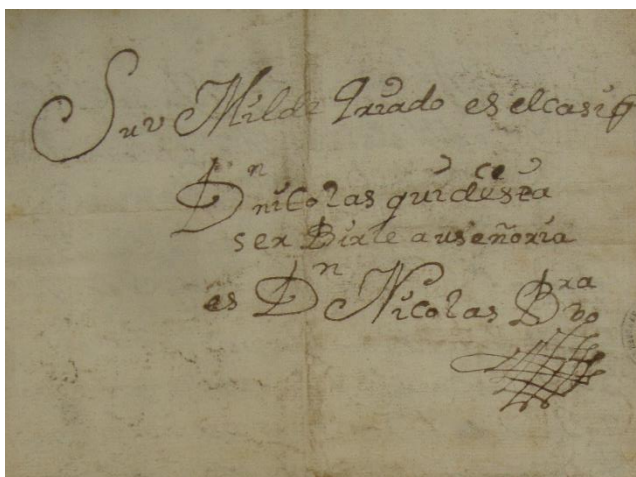 Suv Milde Qriado es elcasiq
Dn nicolas qui desea
serBirle a useñoria
es Dn Nicolas Brabo